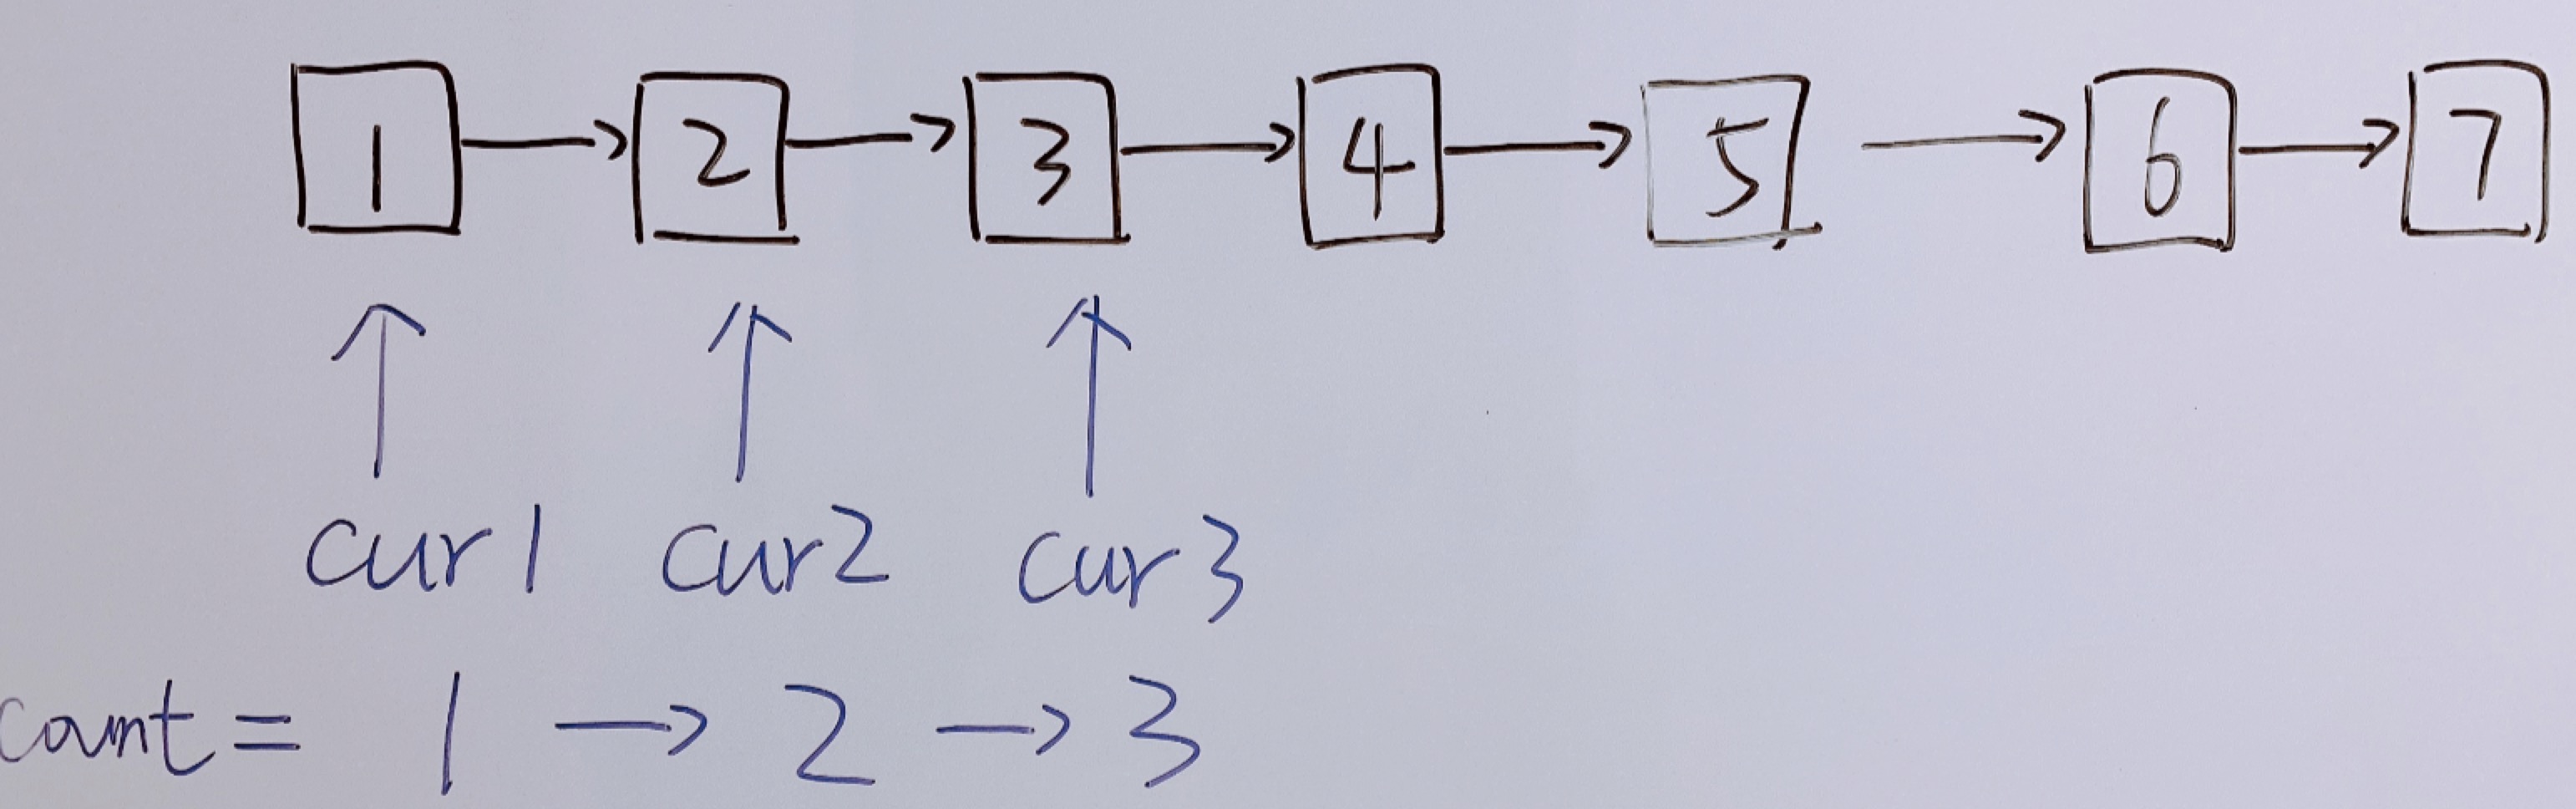 1 → 2 → 3 → 4 → 5 → 6 → 7
cur1 cur2 cur3
count = 1 → 2 → 3